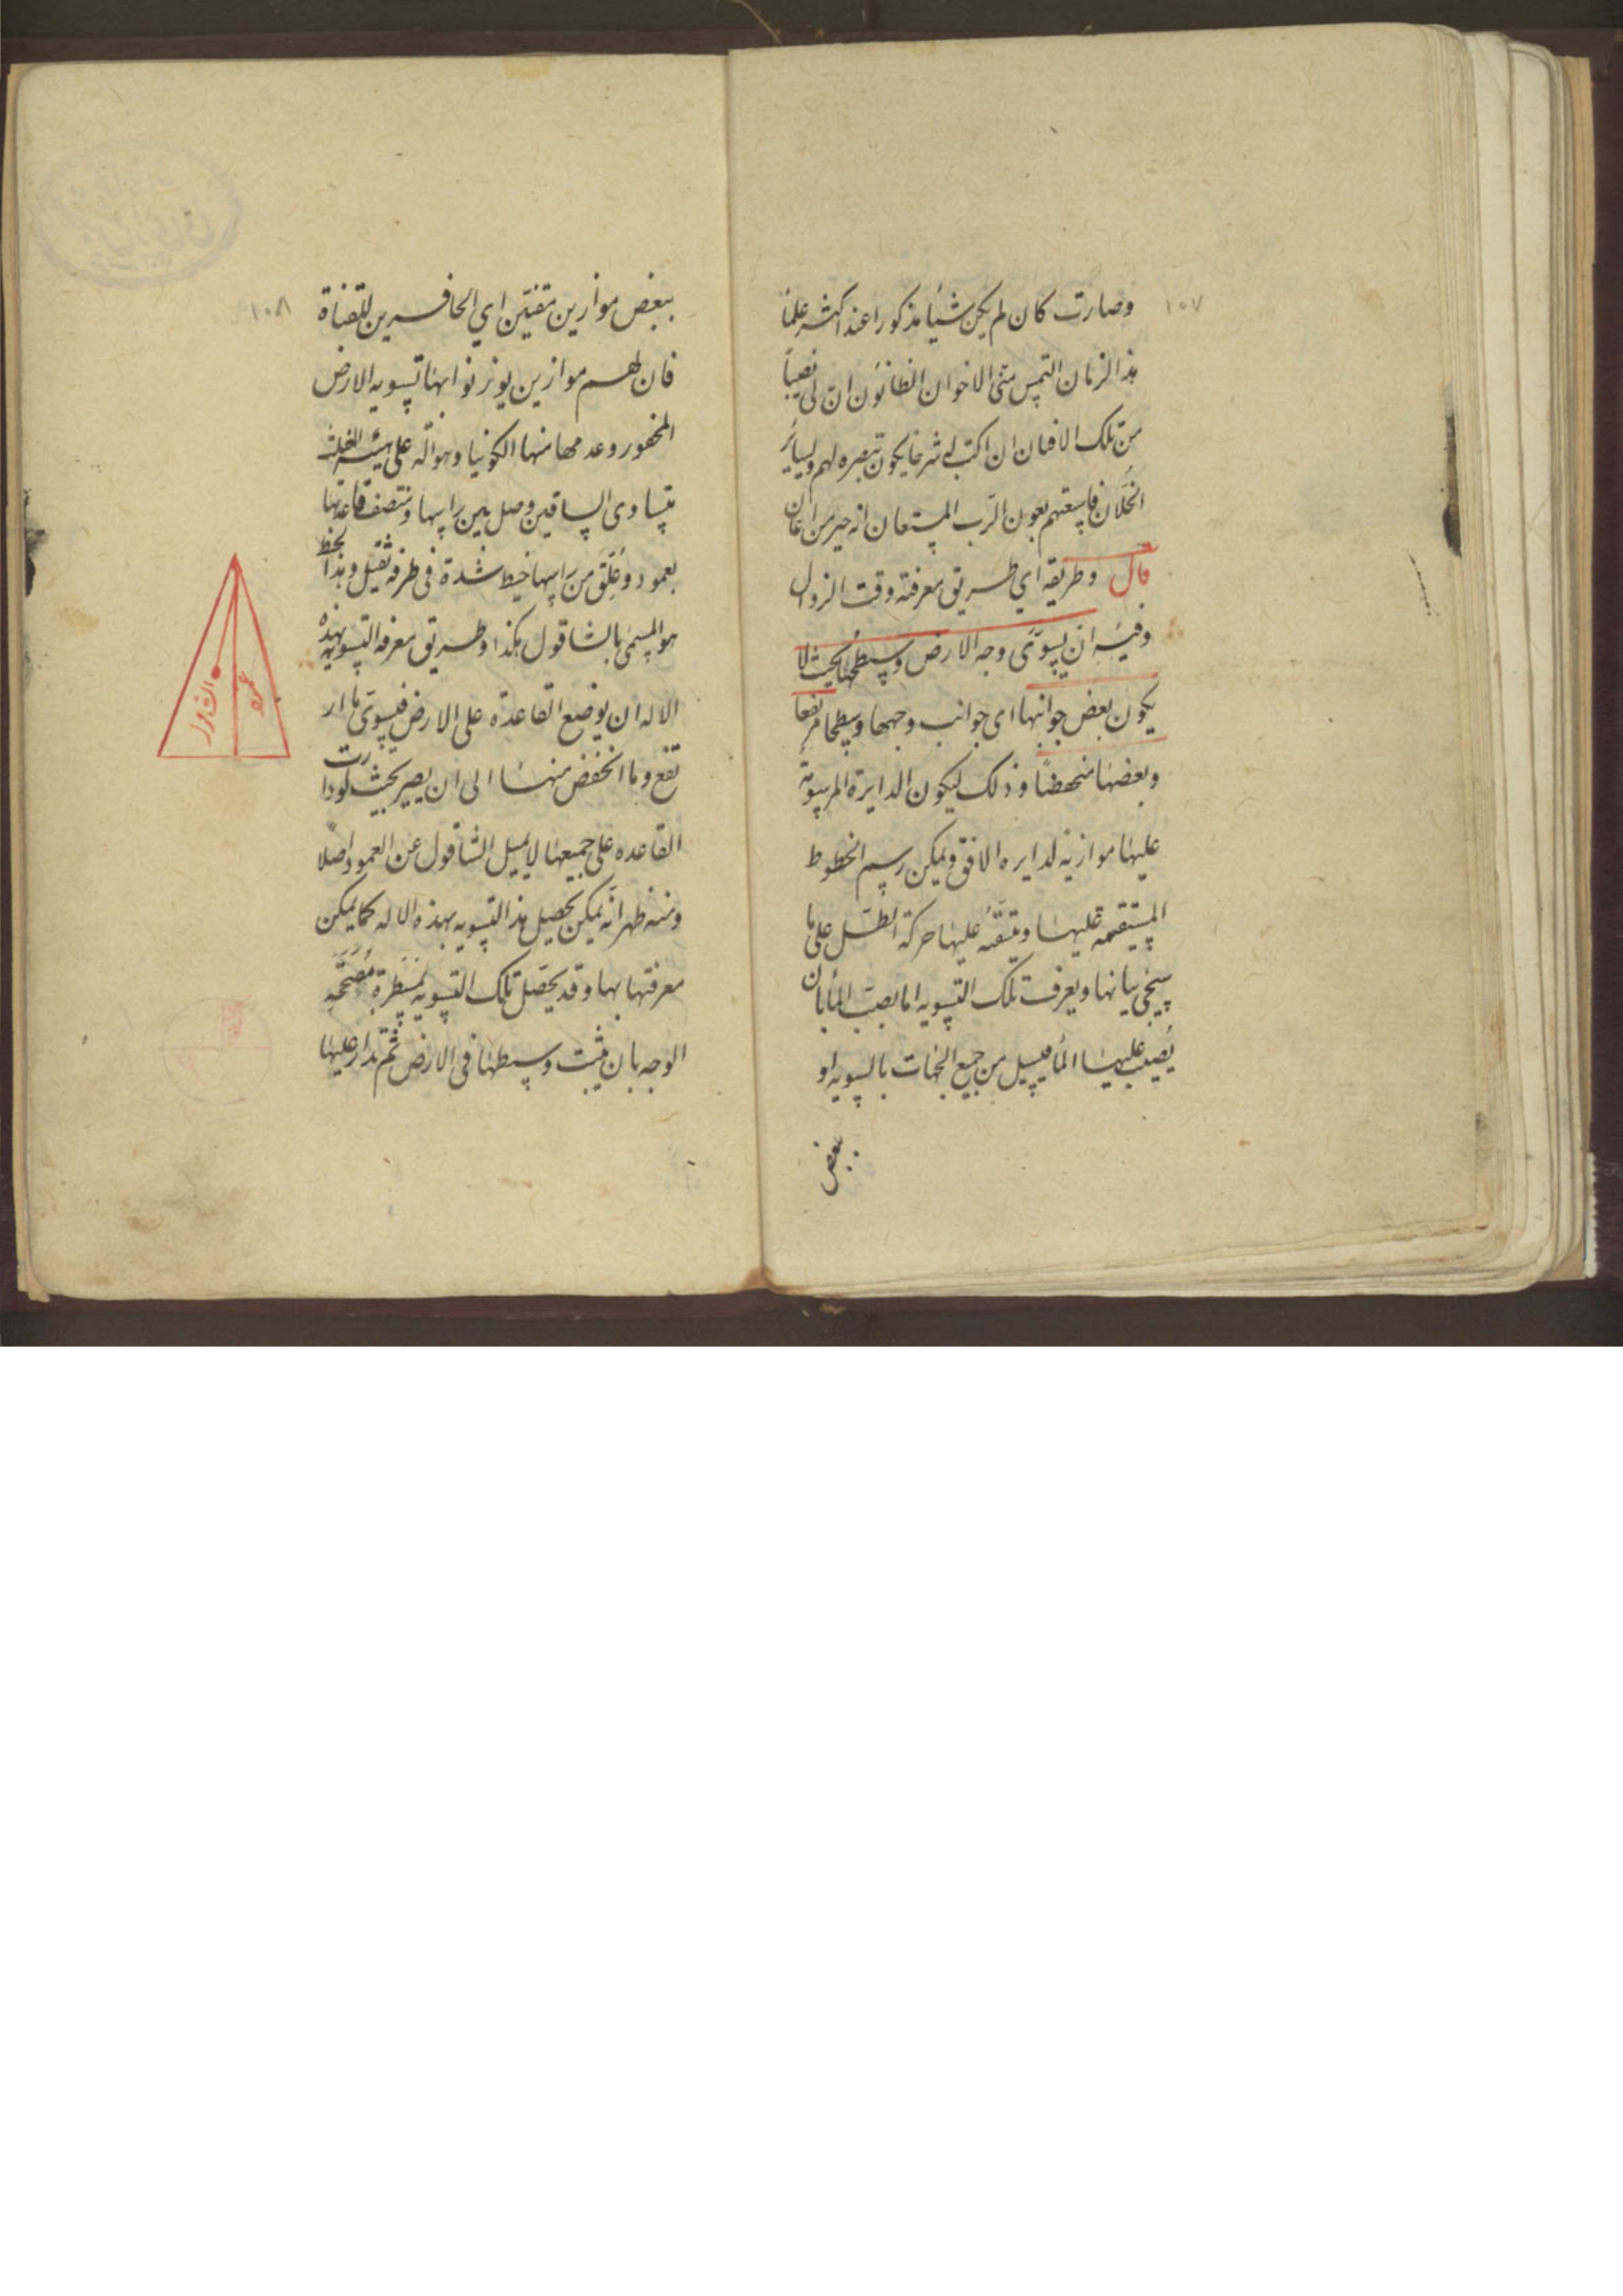 ١٠٧
وصارت كان لم يكن شيأ مذكورا عند اكثر علمأ
هذا الزمان التمس منى الاخوان الظانون ان لى نصيباً
من تلك الافنان ان اكتب له شرحا يكون تبصره لهم ولساير
الخلان فاسعتهم بعون الرب المستعان انه خير من اعان
قال وطريقه اي طريق معرفة وقت الزوال
وفيئه ان يسوّى وجه الارض وسطحها بحيث لا
يكون بعض جوانبها اى جوانب وجهها وسطحها مرتفعا
وبعضها منخفضاً وذلك ليكون الدايرة المرسومة
عليها موازية لدايره الافق ويمكن رسم الخطوط
المستقيمه عليها و عليها حركة الظل على ما
سيجئ بيانها ويعرف تلك التسويه اما بصبّ المأ بان
يُصب عليها المأ فيسيل من جميع الجهات بالسويه او
ببعض
١٠٨
ببعض موازين مقنين اي الحافرين للقناة
فان لهم موازين يوزنوا بها تسويه الارض
المحفور وعدمها منها الكونيا وهو آلة على هيئة المثلث
متساوى الساقين وصل بين راسها ومنتصف قاعدتها
بعمود وعُلّق من راسها خيط شدة فى طرفه ثقيل وهذا الخيط
هو المسمى بالشاقول هكذا وطريق معرفه التسويه بهذه
الاله ان يوضع القاعدة على الارض فيسوّى ما ار
تفع وما انخفض منها الى ان يصير بحيث لو دارت
القاعده على جميعها لا يميل الشاقول عن العمود اصلاً
ومنه ظهر انّه يمكن تحصيل هذا التسويه بهذه الاله كما يمكن
معرفتها بها وقد يحصّل تلك التسويه بمسطرة مصححه
الوجه بان يثبت وسطها فى الارض ثم يدار عليها
عمود